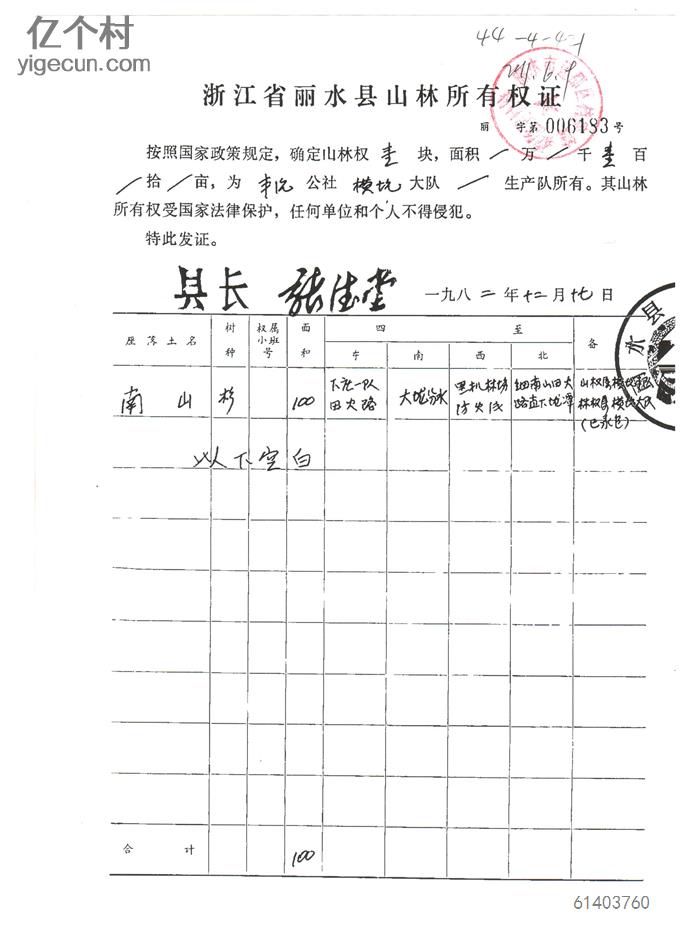 亿个村
yigecun.com
44-4-4-1
浙江省丽水县山林所有权证
丽 字第 006183 号
按照国家政策规定，确定山林权 壹 块，面积 / 万 / 千 壹 百
/ 拾 / 亩，为 公社 横坑 大队 / 生产队所有。其山林
所有权受国家法律保护，任何单位和个人不得侵犯。
特此发证。
县长 张佳堂 一九八二年十二月十七日
座落土名 树种 权属小班号 面积 四至 备
东 南 西 北
南山 杉 100 下 一队田大路 大垅分水 林场防火线 南山田大路直下 山权属横 林权属横坑大队
以下空白
合计 100
水县
61403760